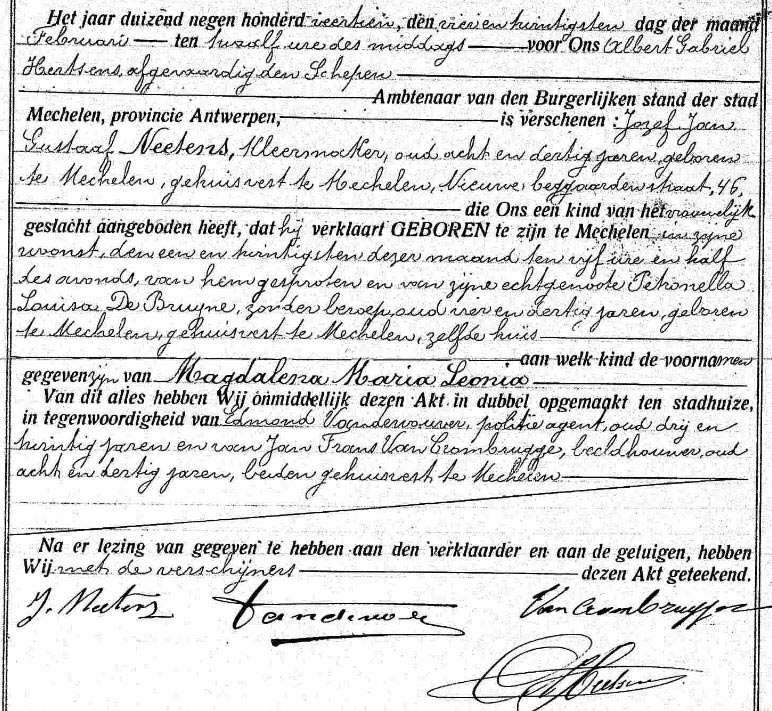 Het jaar duizend negen honderd veertien, den vier en twintigsten dag der maand
Februari ten twaalf ure des middags voor Ons Albert Gabriel
Hertsens, afgevaardigden Schepen
Ambtenaar van den Burgerlijken stand der stad
Mechelen, provincie Antwerpen, is verschenen : Jozef Jan
Gustaaf Neetens, Kleermaker, oud acht en dertig jaren, geboren
te Mechelen, gehuisvest te Mechelen, Nieuwe beggaardenstraat, 46,
die Ons een kind van het vrouwelijk
geslacht aangeboden heeft, dat hij verklaart GEBOREN te zijn te Mechelen in zijne
woonst, den een en twintigsten dezer maand ten vijf ure en half
des avonds, van hem gesproten en van zijne echtgenoote Petronella
Louisa De Bruyne, zonder beroep, oud vier en dertig jaren, geboren
te Mechelen, gehuisvest te Mechelen, zelfde huis
aan welk kind de voornamen
gegeven zijn van Magdalena Maria Leonia
Van dit alles hebben Wij onmiddellijk dezen Akt in dubbel opgemaakt ten stadhuize,
in tegenwoordigheid van Edmond Vandervouver, politie agent, oud drij en
twintig jaren en van Jan Frans Van Crombrugge, beeldhouwer, oud
acht en dertig jaren, beiden gehuisvest te Mechelen
Na er lezing van gegeven te hebben aan den verklaarder en aan de getuigen, hebben
Wij met de verschijners dezen Akt geteekend.
J. Neetens Van Crombrugge